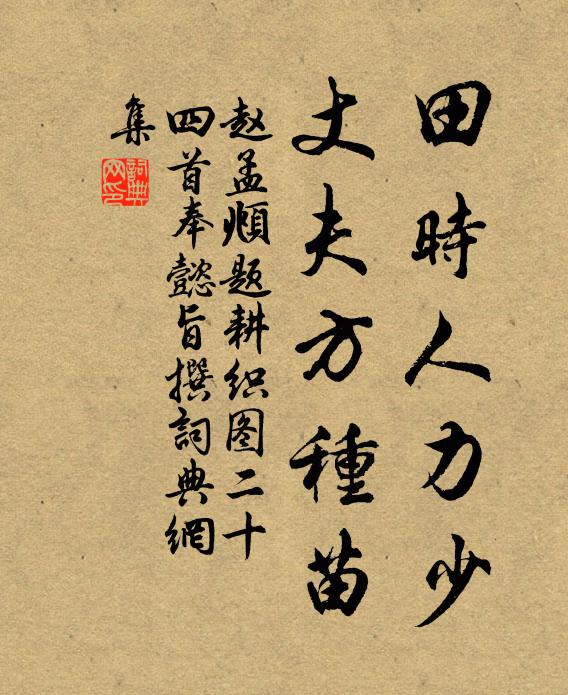 田時人力少
丈夫方種苗
赵孟頫题耕织图二十
四首奉懿旨撰詞典網
集
詞典網印